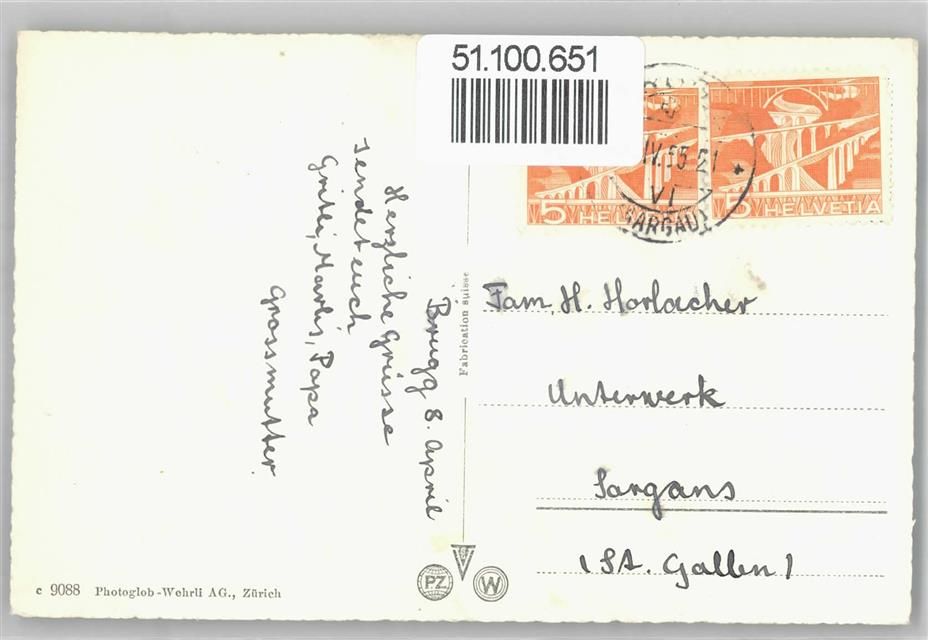 51.100.651
IV.55 21
VI
(AARGAU)
5 HELVETIA
5 HELVETIA
Brugg 8. April
Herzliche Grüsse
sendet euch
Gritli, Marlis, Papa
Grossmutter.
Fabrication suisse
Fam. H. Horlacher
Unterwerk
Sargans
(St. Gallen)
PZ
W
c 9088 Photoglob-Wehrli AG., Zürich